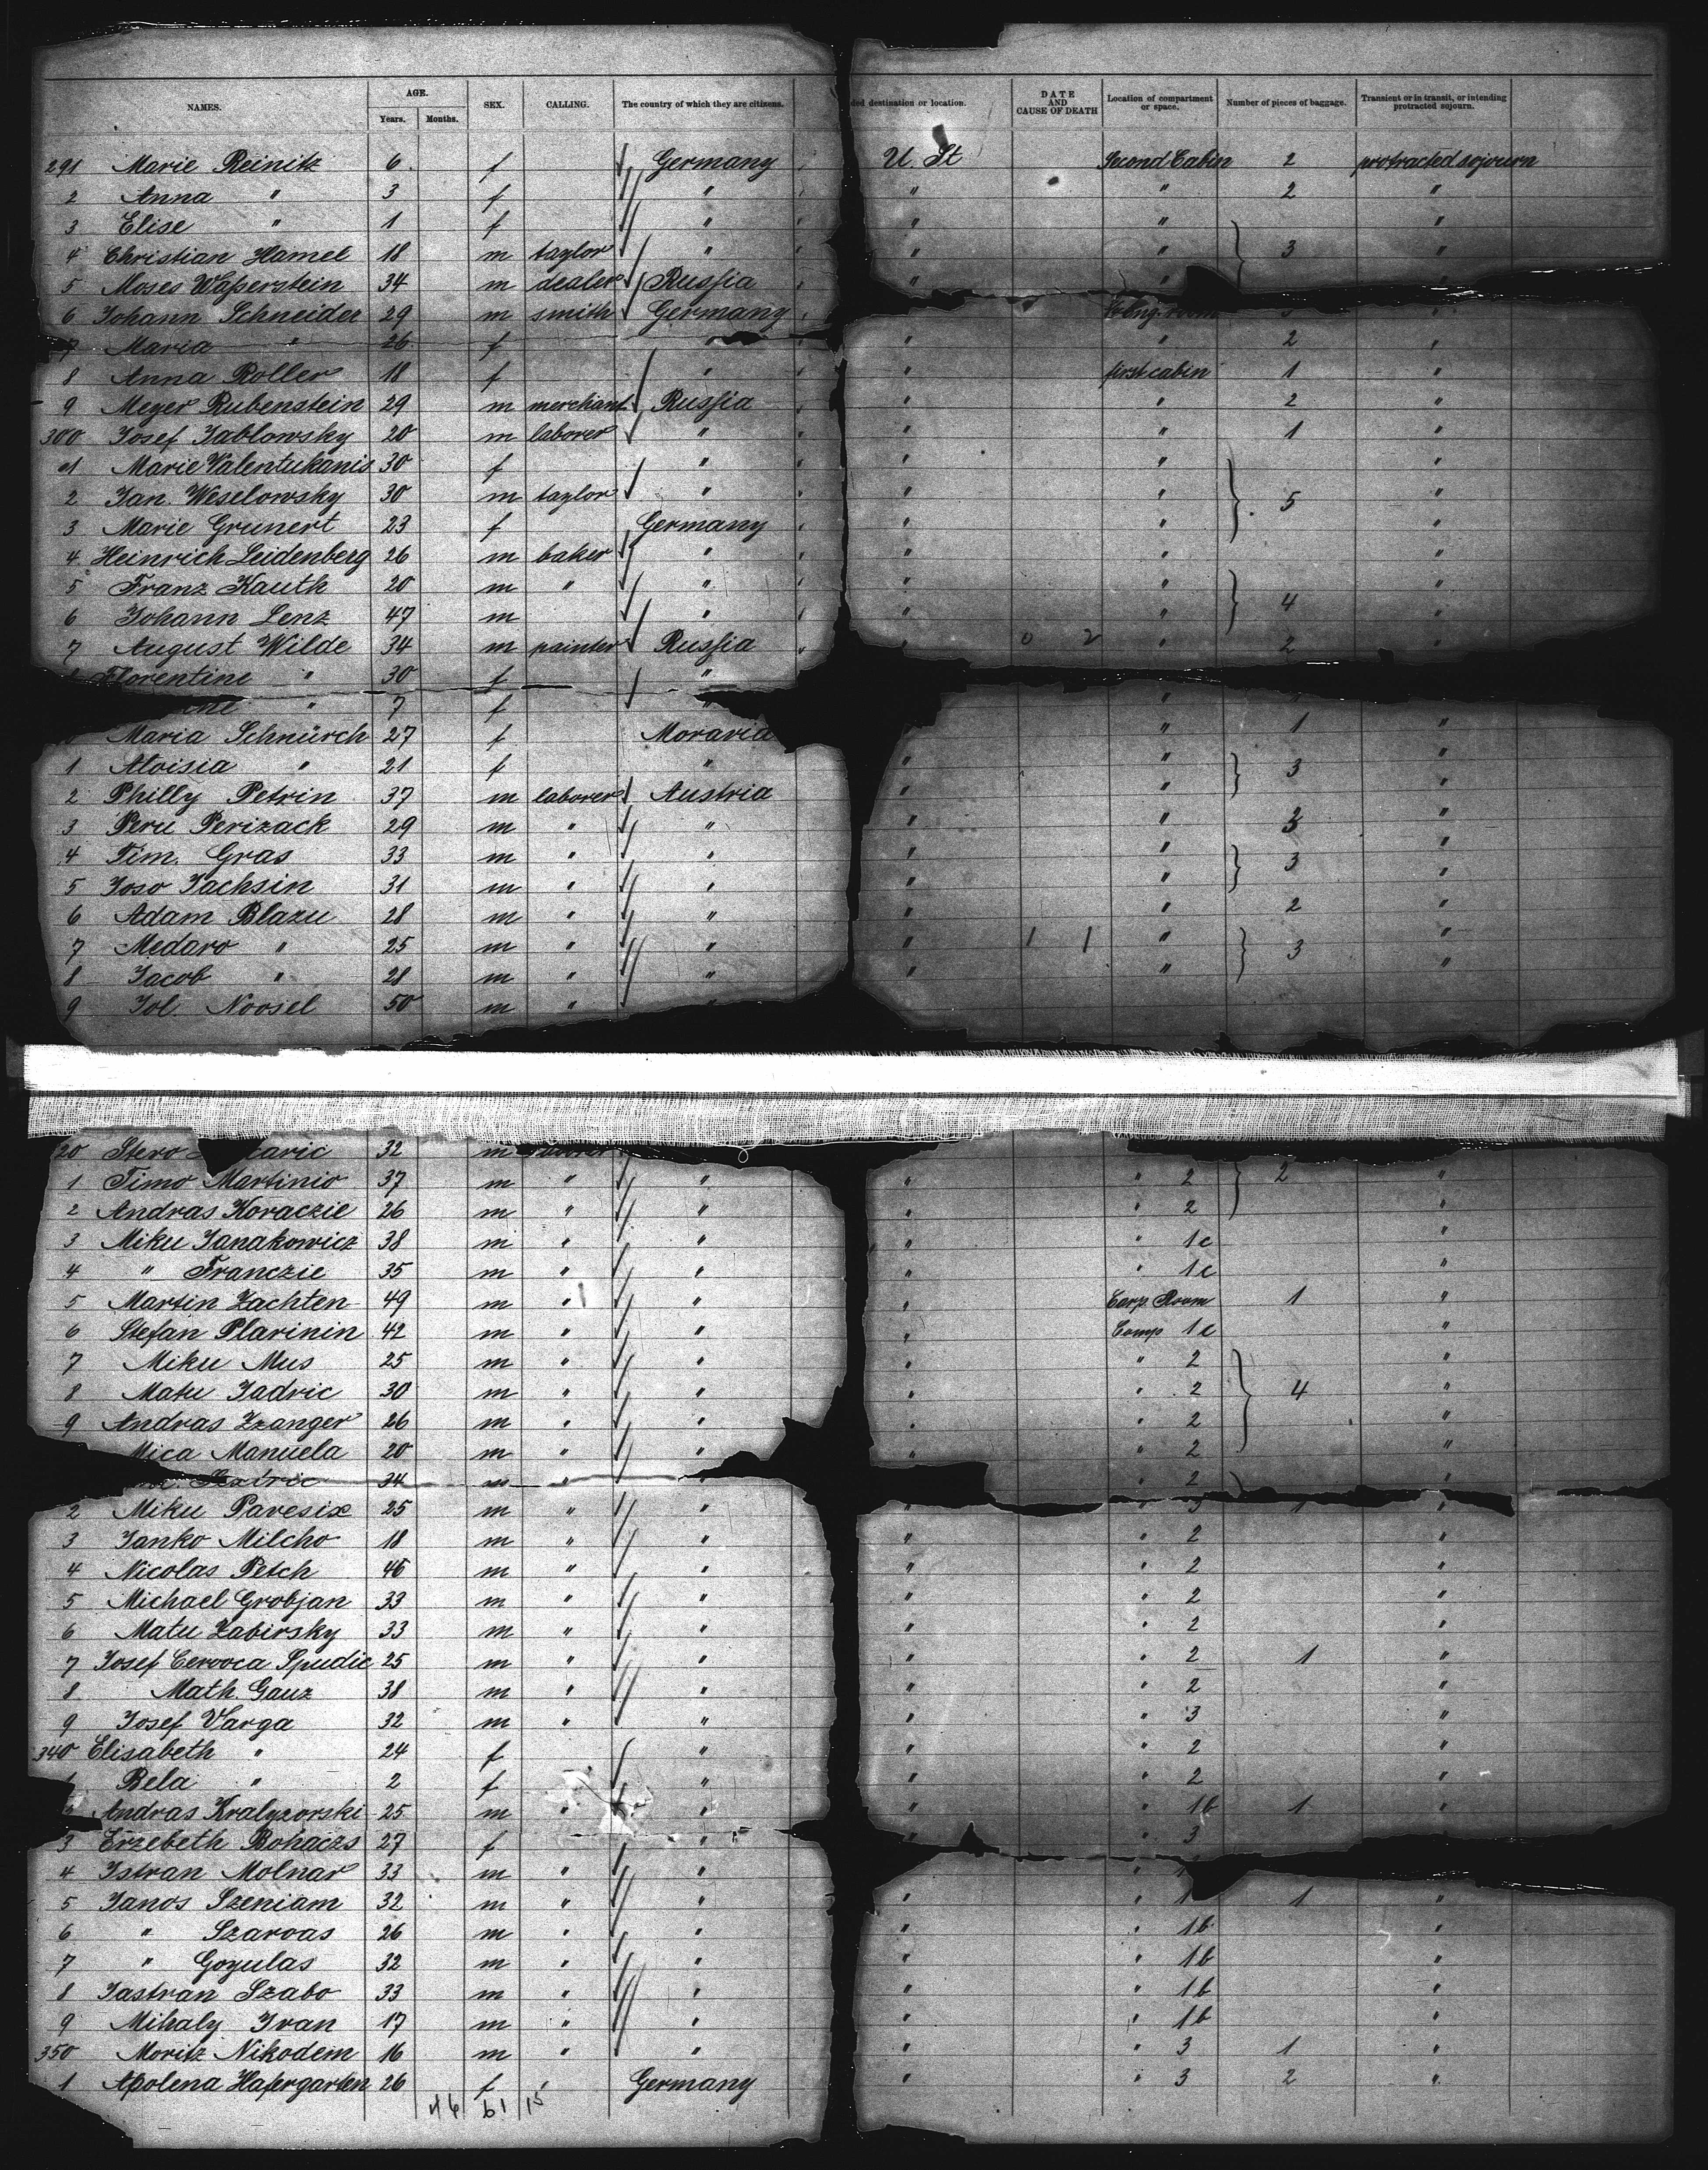 NAMES. AGE. Years. Months. SEX. CALLING. The country of which they are citizens. ded destination or location. DATE AND CAUSE OF DEATH Location of compartment or space. Number of pieces of baggage. Transient or in transit, or intending protracted sojourn.
291 Marie Reinitz 6 f Germany U. St Second Cabin 2 protracted sojourn
2 Anna " 3 f " " " 2 "
3 Elise " 1 f " " " "
4 Christian Hamel 18 m taylor " " " 3 "
5 Moses Waßerstein 34 m dealer Rußia " "
6 Johann Schneider 29 m smith Germany
7 Maria " 26 f " " " 2 "
8 Anna Roller 18 f " " first cabin 1 "
9 Meyer Rubenstein 29 m merchant Rußia " " 2 "
300 Josef Jablowsky 20 m laborer " " " 1 "
1 Marie Valentukanis 30 f " " " "
2 Jan Weselowsky 30 m taylor " " " 5 "
3 Marie Grunert 23 f Germany " " "
4 Heinrich Leidenberg 26 m baker " " " "
5 Franz Kauth 20 m " " " " "
6 Johann Lenz 47 m " " " 4 "
7 August Wilde 34 m painter Rußia " 0 2 " 2 "
Florentine " 30 f "
" 7 f " "
Maria Schnürch 27 f Moravia " 1 "
1 Aloisia " 21 f " " " 3 "
2 Philly Petrin 37 m laborer Austria " " "
3 Peru Perizack 29 m " " " " "
4 Tim. Gras 33 m " " " " 3 "
5 Joso Jachsin 31 m " " " " "
6 Adam Blazu 28 m " " " " 2 "
7 Medaro " 25 m " " " 1 1 " 3 "
8 Jacob " 28 m " " " " "
9 Jol. Noosel 50 m " "
20 Stero 32 m
1 Timo Martinio 37 m " " " " 2 2 "
2 Andras Koraczie 26 m " " " " 2 "
3 Miku Janakowicz 38 m " " " " 1c "
4 " Franczie 35 m " " " " 1c "
5 Martin Zachten 49 m " " " Carp. Room 1 "
6 Stefan Plarinin 42 m " " " Comp 1c "
7 Miku Mus 25 m " " " " 2 "
8 Matu Jadric 30 m " " " " 2 4 "
9 Andras Zzanger 26 m " " " " 2 "
Mica Manuela 20 m " " " " 2 "
34 m " " " 2 "
2 Miku Pavesix 25 m " " " " 3 1 "
3 Janko Milcho 18 m " " " " 2 "
4 Nicolas Petch 46 m " " " " 2 "
5 Michael Grobjan 33 m " " " " 2 "
6 Matu Zabirsky 33 m " " " " 2 "
7 Josef Cervoca Spudic 25 m " " " " 2 1 "
8 Math. Gauz 38 m " " " " 2 "
9 Josef Varga 32 m " " " " 3 "
340 Elisabeth " 24 f " " " 2 "
Bela " 2 f " " " 2 "
Andras Kralyzorski 25 m " " " " 1b 1 "
3 Erzebeth Bohaczs 27 f " " " 3
4 Istran Molnar 33 m " "
5 Janos Szeniam 32 m " " " " 1 1 "
6 " Szarvas 26 m " " " " 1b "
7 " Goyulas 32 m " " " " 1b "
8 Jastran Szabo 33 m " " " " 1b "
9 Mihaly Ivan 17 m " " " " 1b "
350 Moritz Nikodem 16 m " " " " 3 1 "
1 Apolena Hafergarten 26 f Germany " " 3 2 "
46 61 15